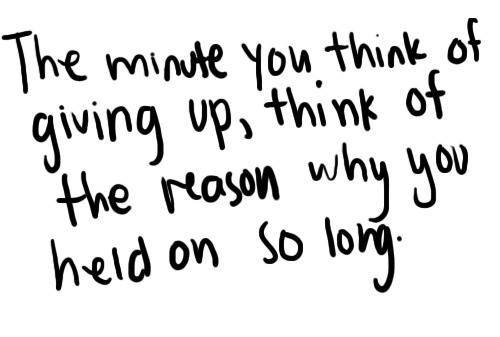 The minute you think of
giving up, think of
the reason why you
held on so long.